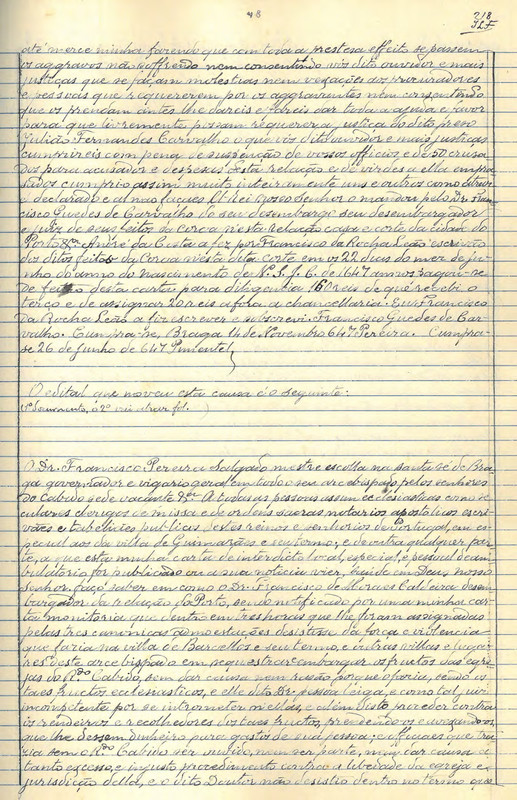 48
218
até merce minha fazendo que com toda a prestesa effeito se passem
os aggravos não soffrendo nem consentindo vós dito ouvidor e mais
justiças que se façam molestias nem vexações aos procuradores
e pessoas que requererem por os aggravantes nem consentindo
que os prendam antes lhe dareis e fareis dar toda a ajuda e favor
para que livremente possam requerer a justiça do dito preso
Julião Fernandes Carvalho o que vós dito ouvidor e mais justiças
cumprireis com pena de suspenção de vossos officios, e de 50 cruza-
dos para acusador e despezas desta relação e de virdes a ella empra-
sados cumpri-o assim muito inteiramente uns e outros como atraz
é declarado e al não façaes. El-Rei nosso Senhor o mandou pelo Dr. Fran-
cisco Guedes de Carvalho do seu desembargo seu desembargador
e juiz de seus feitos da coroa nesta relação casa e corte da cidade do
Porto &c. André da Costa a fez por Francisco da Rocha Leão escrivão
dos ditos feitos da Coroa nesta dita Corte em os 22 dias do mez de ju-
nho do anno do nascimento de N. S. J. C. de 1647 annos pagou-se
de feitio desta carta para diligencia 160 reis de que recebi o
terço e de assignar 20 reis a fóla a chancellaria. Eu Francisco
da Rocha Leão a fiz escrever e subscrevi. Francisco Guedes de Car-
valho. Cumpra-se, Braga 14 de Novembro 647 Pereira. Cumpra-
se 26 de Junho de 647 Pimentel
O edital que moveu esta causa é o seguinte:
O Dr. Francisco Pereira Salgado mestre escolla na santa sé de Bra-
ga governador e vigario geral em todo o seu arcebispado pelos senhores
do Cabido sede vacante &c. A todas as pessoas assim ecclesiasticas como se-
culares clerigos de missa e de ordens sacras notarios apostolicos escri-
vães e tabelliães publicos destes reinos e senhorios de Portugal, em es-
pecial aos da villa de Guimarães e seu termo, e de outra qualquer par-
te, a que esta minha carta de interdicto local, especial, e pessoal deam-
bulatorio for publicado ou a sua noticia vier, saude em Deus, nosso
Senhor faço saber em como o Dr. Francisco de Moraes Caldeira desem-
bargador da relação do Porto, sendo notificado por uma minha car-
ta monitoria que dentro em tres horas que lhe foram assignadas
pelas tres canonicas admoestações desistisse da força e violencia
que fazia na villa de Barcellos e seu termo, e outras villas e luga-
res deste arcebispado em sequestrar e embargar os fructos das egre-
jas do R.do Cabido, sem dar causa nem rasão porque o fazia, sendo os
taes fructos ecclesiasticos, e elle dito Dr. pessoa leiga, e como tal, ser
incompetente por se intrometer n'ellas, e alem disto proceder contra
os rendeiros e recolhedores dos taes fructos, prendendo-os e
que lhe dessem dinheiro para gastos de sua pessoa, e officiaes que tra-
zia sem o R.do Cabido ser ouvido, nem ser parte, nem dar causa a
tanto excesso, e injusto procedimento contra a liberdade da egreja e
jurisdição della, e o dito Doutor não desistio dentro no termo que